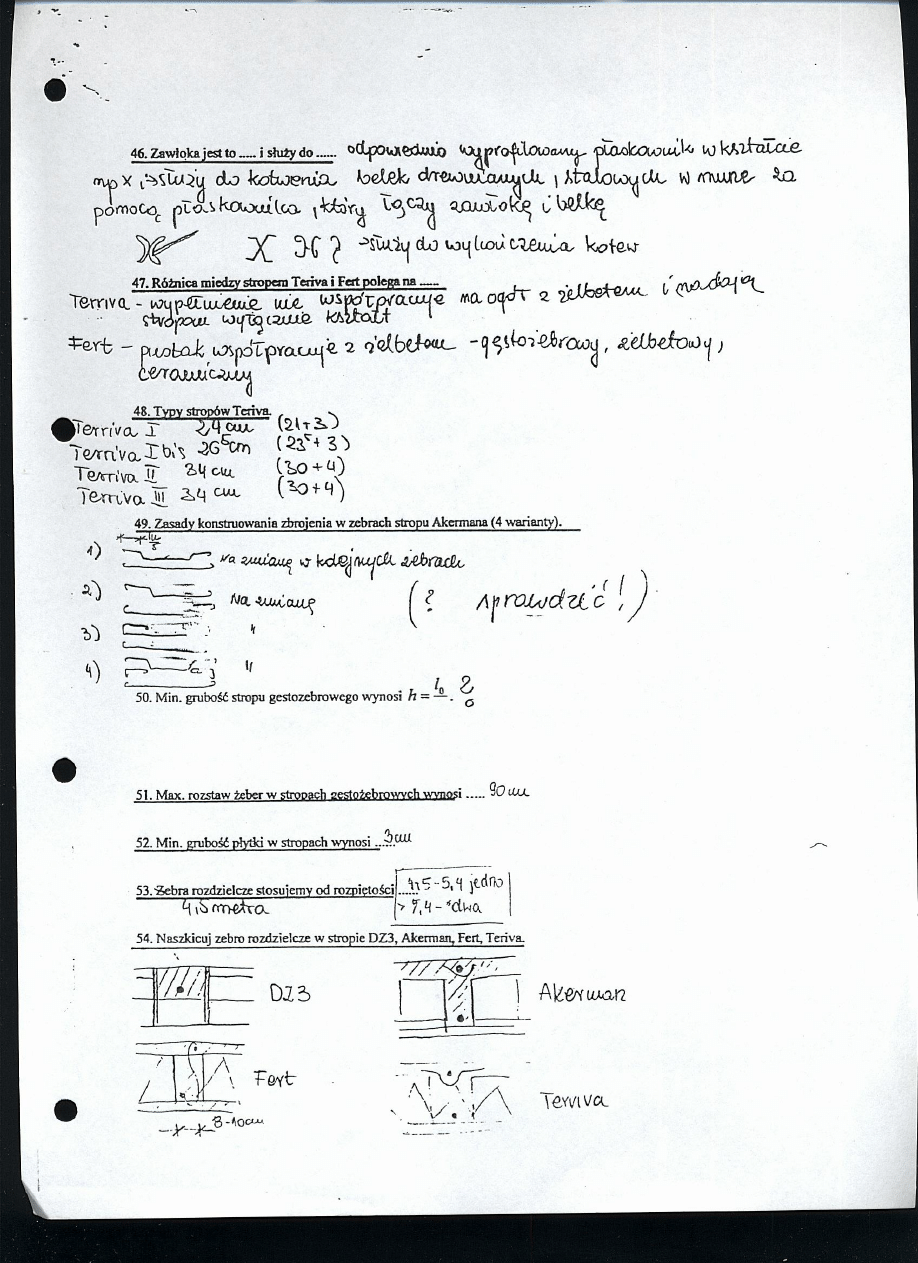 46. Zawłoka jest to ..... i służy do ...... odpowiednio wyprofilowany płaskownik w kształcie
np X, → służy do kotwienia belek drewnianych, stalowych w murze za
pomocą płaskownika, który łączy zawłokę i belkę
→ służy do wykończenia kotew
47. Różnica miedzy stropem Teriva i Fert polega na .....
Terriva - wypełnienie nie współpracuje na ogół z żelbetem i nadają
stropom wyłącznie kształt
Fert - pustak współpracuje z żelbetem - gęstożebrowy, żelbetowy,
ceramiczny
48. Typy stropów Teriva.
Terriva I 24 cm (21+3)
Terriva I bis 26⁵ cm (23⁵+3)
Terriva II 34 cm (30+4)
Terriva III 34 cm (30+4)
49. Zasady konstruowania zbrojenia w zebrach stropu Akermana (4 warianty).
1) Na zmianę w kolejnych żebrach
2) Na zmianę (? sprawdzić!)
3) "
4) "
50. Min. grubość stropu gestozebrowego wynosi h = l₀ . ?
51. Max. rozstaw żeber w stropach gestożebrowych wynosi ..... 90 cm
52. Min. grubość płytki w stropach wynosi ...... 3 cm
53. Żebra rozdzielcze stosujemy od rozpiętości ...... 4,5 - 5,4 jedno
4,5 metra > 5,4 - dwa
54. Naszkicuj zebro rozdzielcze w stropie DZ3, Akerman, Fert, Teriva.
DZ3 Akerman
Fert Terriva
8-10cm